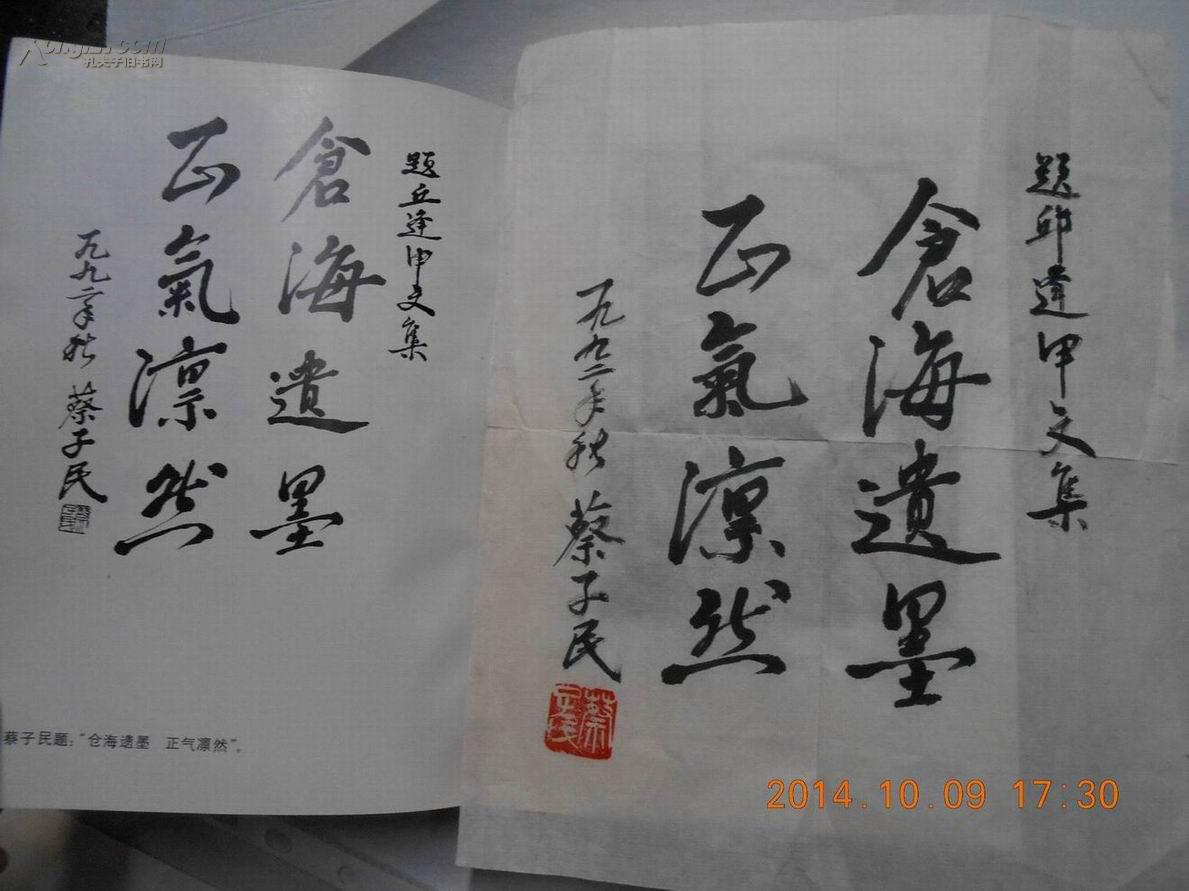 Kongfz.com
孔夫子旧书网
题丘逢甲文集
倉海遺墨
正氣凛然
一九九二年秋 蔡子民
蔡子民题：“仓海遗墨 正气凛然”。
题邱逢甲文集
倉海遺墨
正氣凛然
一九九二年秋 蔡子民
蔡子民
2014.10.09 17:30